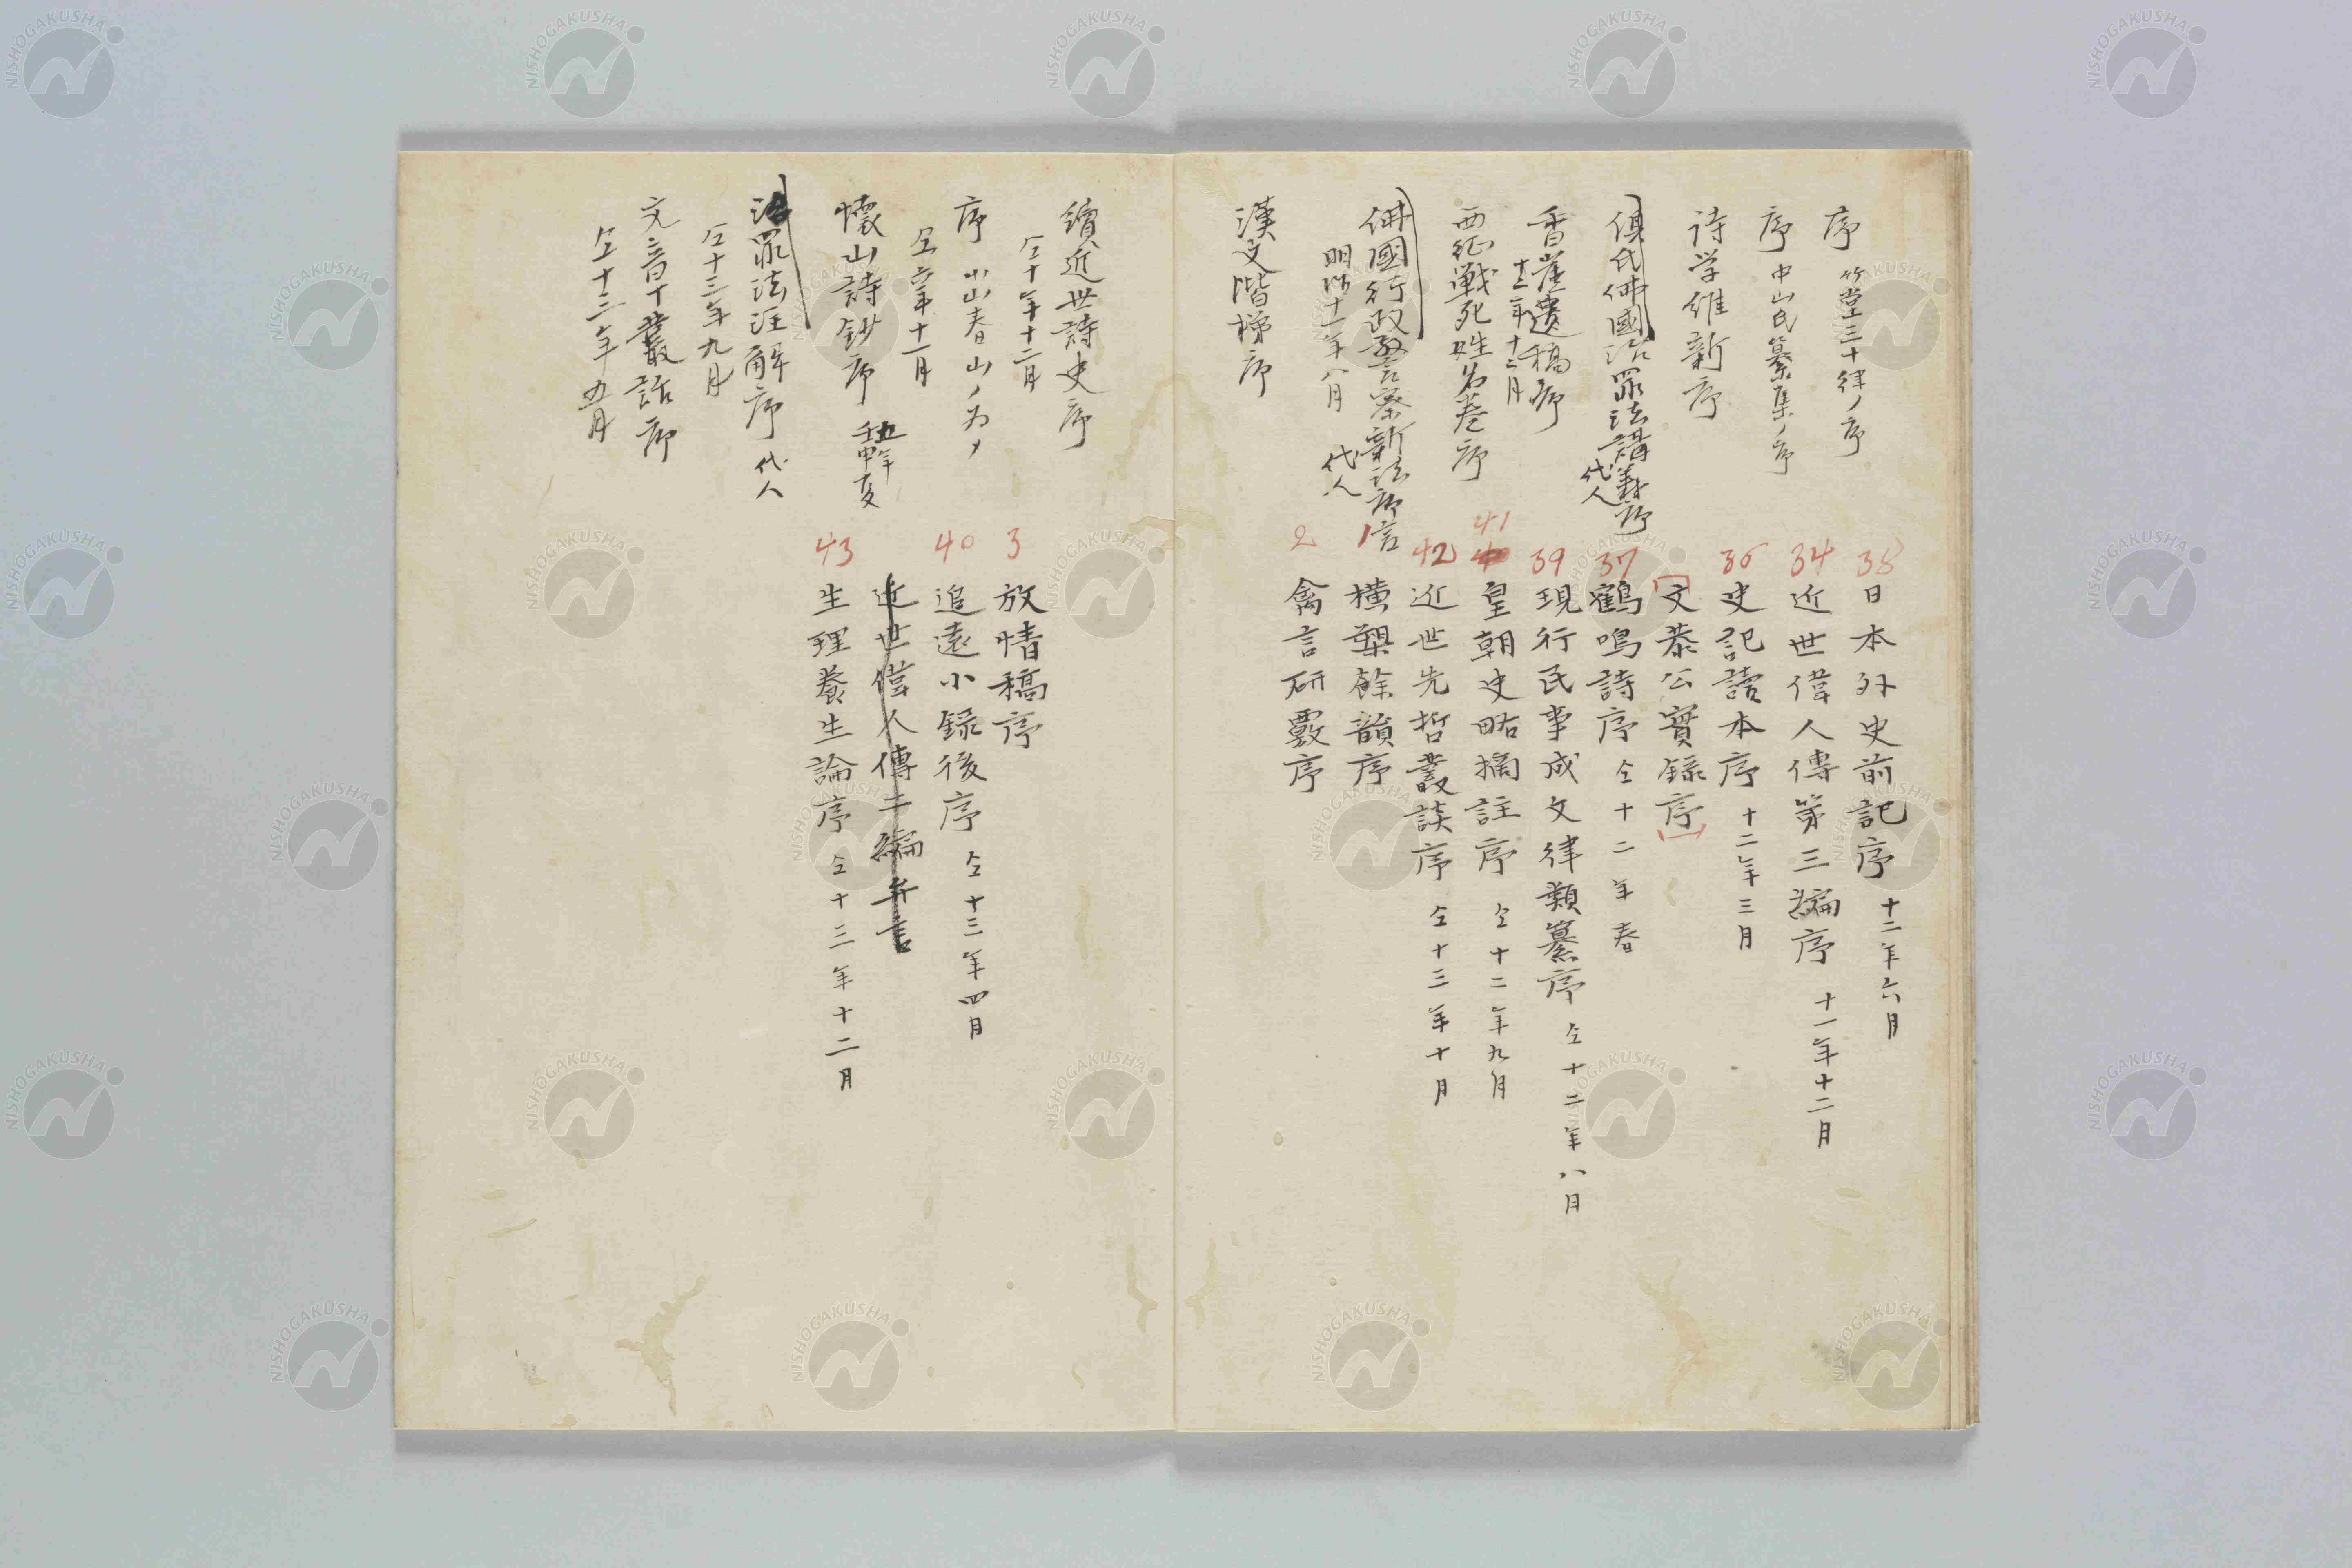 序 竹堂三十律ノ序
序 中山氏纂集ノ序
詩学維新序
俱氏佛國治罪法講義序
代人
香崖遺稿序
十二年十二月
西征戦死姓名巻序
佛國行政警察新法序言
明治十一年八月 代人
漢文階梯序
38 日本外史前記序 十二年六月
34 近世偉人傳第三編序 十一年十二月
36 史記讀本序 十二年三月
文恭公實錄序
37 鶴鳴詩序 仝十二年春
39 現行民事成文律類纂序 仝十二年八月
41 皇朝史略摘註序 仝十二年九月
42 近世先哲叢談序 仝十三年十月
1 横槊餘韻序
2 禽言研覈序
續近世詩史序
仝十年十二月
序 小山春山ノ为ノ
仝六年十一月
懷山詩鈔序 壬申夏
治罪法注解序 代人
仝十三年九月
叢話序
仝十三年五月
3 放情稿序
40 追遠小録後序 仝十三年四月
近世偉人傳二編弁言
43 生理養生論序 仝十三年十二月
NISHOGAKUSHA